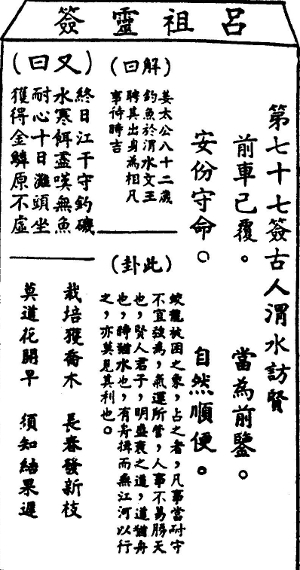 呂祖靈簽
第七十七簽古人渭水訪賢
前車已覆。當為前鑒。
安份守命。自然順便。
(解曰)
姜太公八十二歲
釣魚於渭水文王
聘其出身為相凡
事待時吉
(又曰)
終日江干守釣磯
水寒餌盡嘆無魚
耐心十日灘頭坐
獲得金鱗原不虛
(此卦)
蛟龍被困之象,占之者,凡事當耐守
不宜發為,氣運所管,人事不易勝天
也,賢人君子,明盛衰之道,道猶舟
也,時猶水也,有舟楫而無江河以行
之,亦莫見其利也。
栽培獲喬木 長春發新枝
莫道花開早 須知結果遲